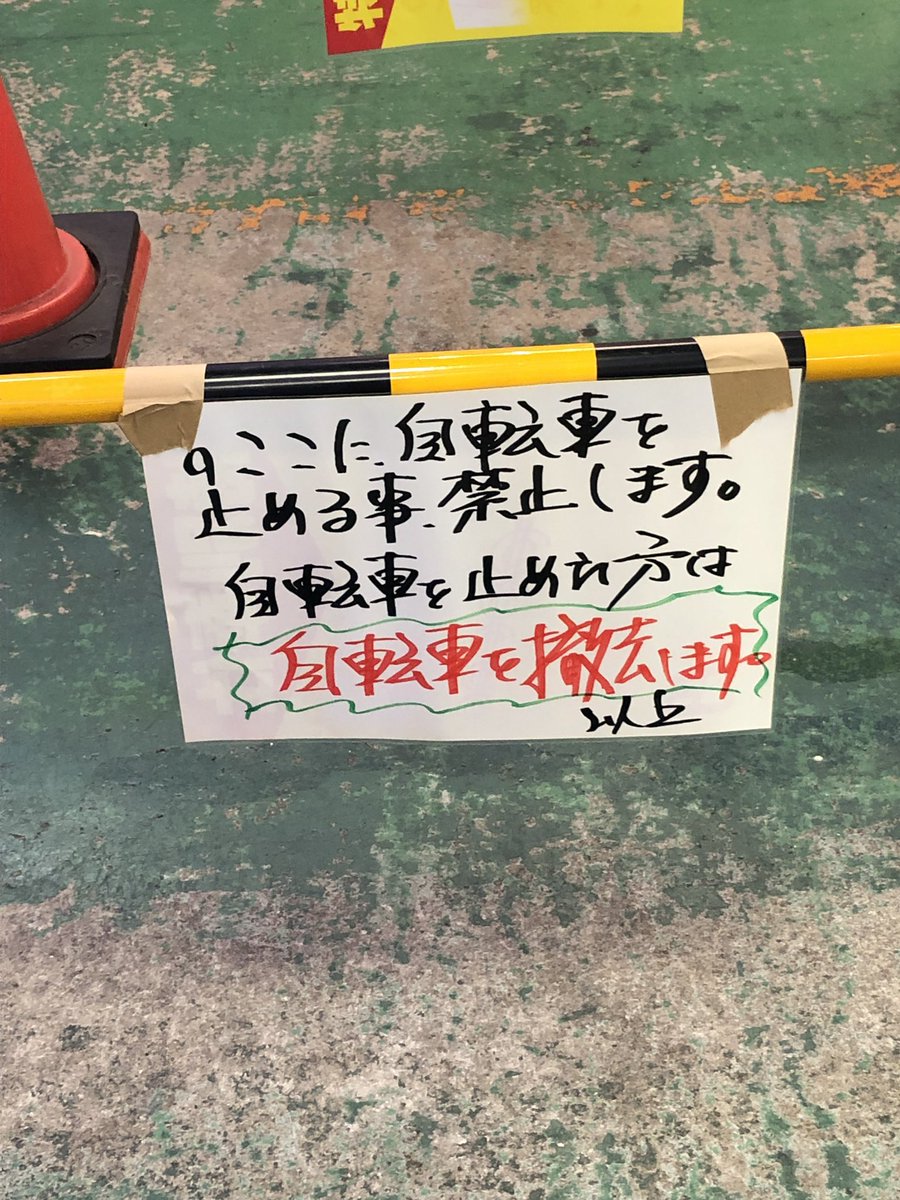 9ここに、自転車を
止める事、禁止します。
自転車を止めれ方は
自転車を撤去します。
以上